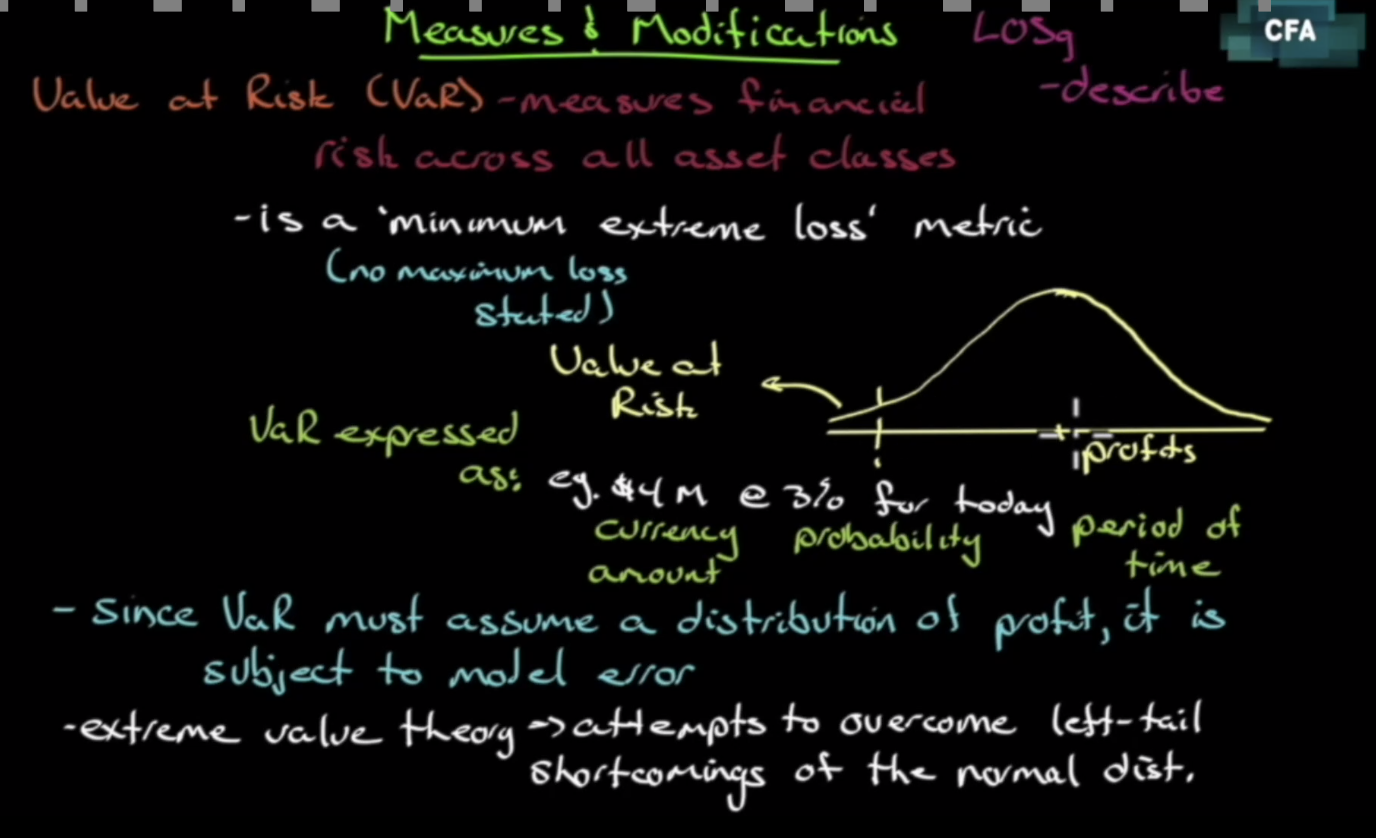 Measures & Modifications
LOSg
CFA
Value at Risk (VaR) - measures financial
- describe
risk across all asset classes
- is a 'minimum extreme loss' metric
(no maximum loss
stated)
Value at
Risk
profits
VaR expressed
as:
eg. $4M @ 3% for today
currency
amount
probability
period of
time
- since VaR must assume a distribution of profit, it is
subject to model error
- extreme value theory -> attempts to overcome left-tail
shortcomings of the normal dist.